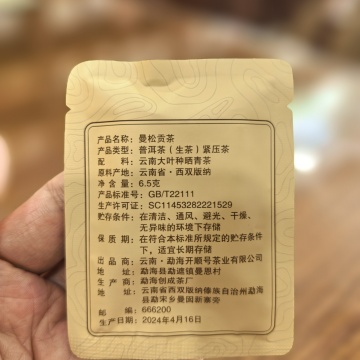 产品名称：曼松贡茶
产品类型：普洱茶（生茶）紧压茶
配　　料：云南大叶种晒青茶
原料产地：云南省·西双版纳
净 含 量：6.5克
产品标准号：GB/T22111
生产许可证：SC11453282221529
贮存条件：在清洁、通风、避光、干燥、
无异味的环境下存储
保 质 期：在符合本标准所规定的贮存条件
下，适宜长期存储
出 品 商：云南·勐海开顺号茶业有限公司
地　　址：勐海县勐遮镇曼恩村
生 产 商：勐海创成茶厂
地　　址：云南省西双版纳傣族自治州勐海
县勐宋乡曼囡新寨旁
邮　　编：666200
生产日期：2024年4月16日